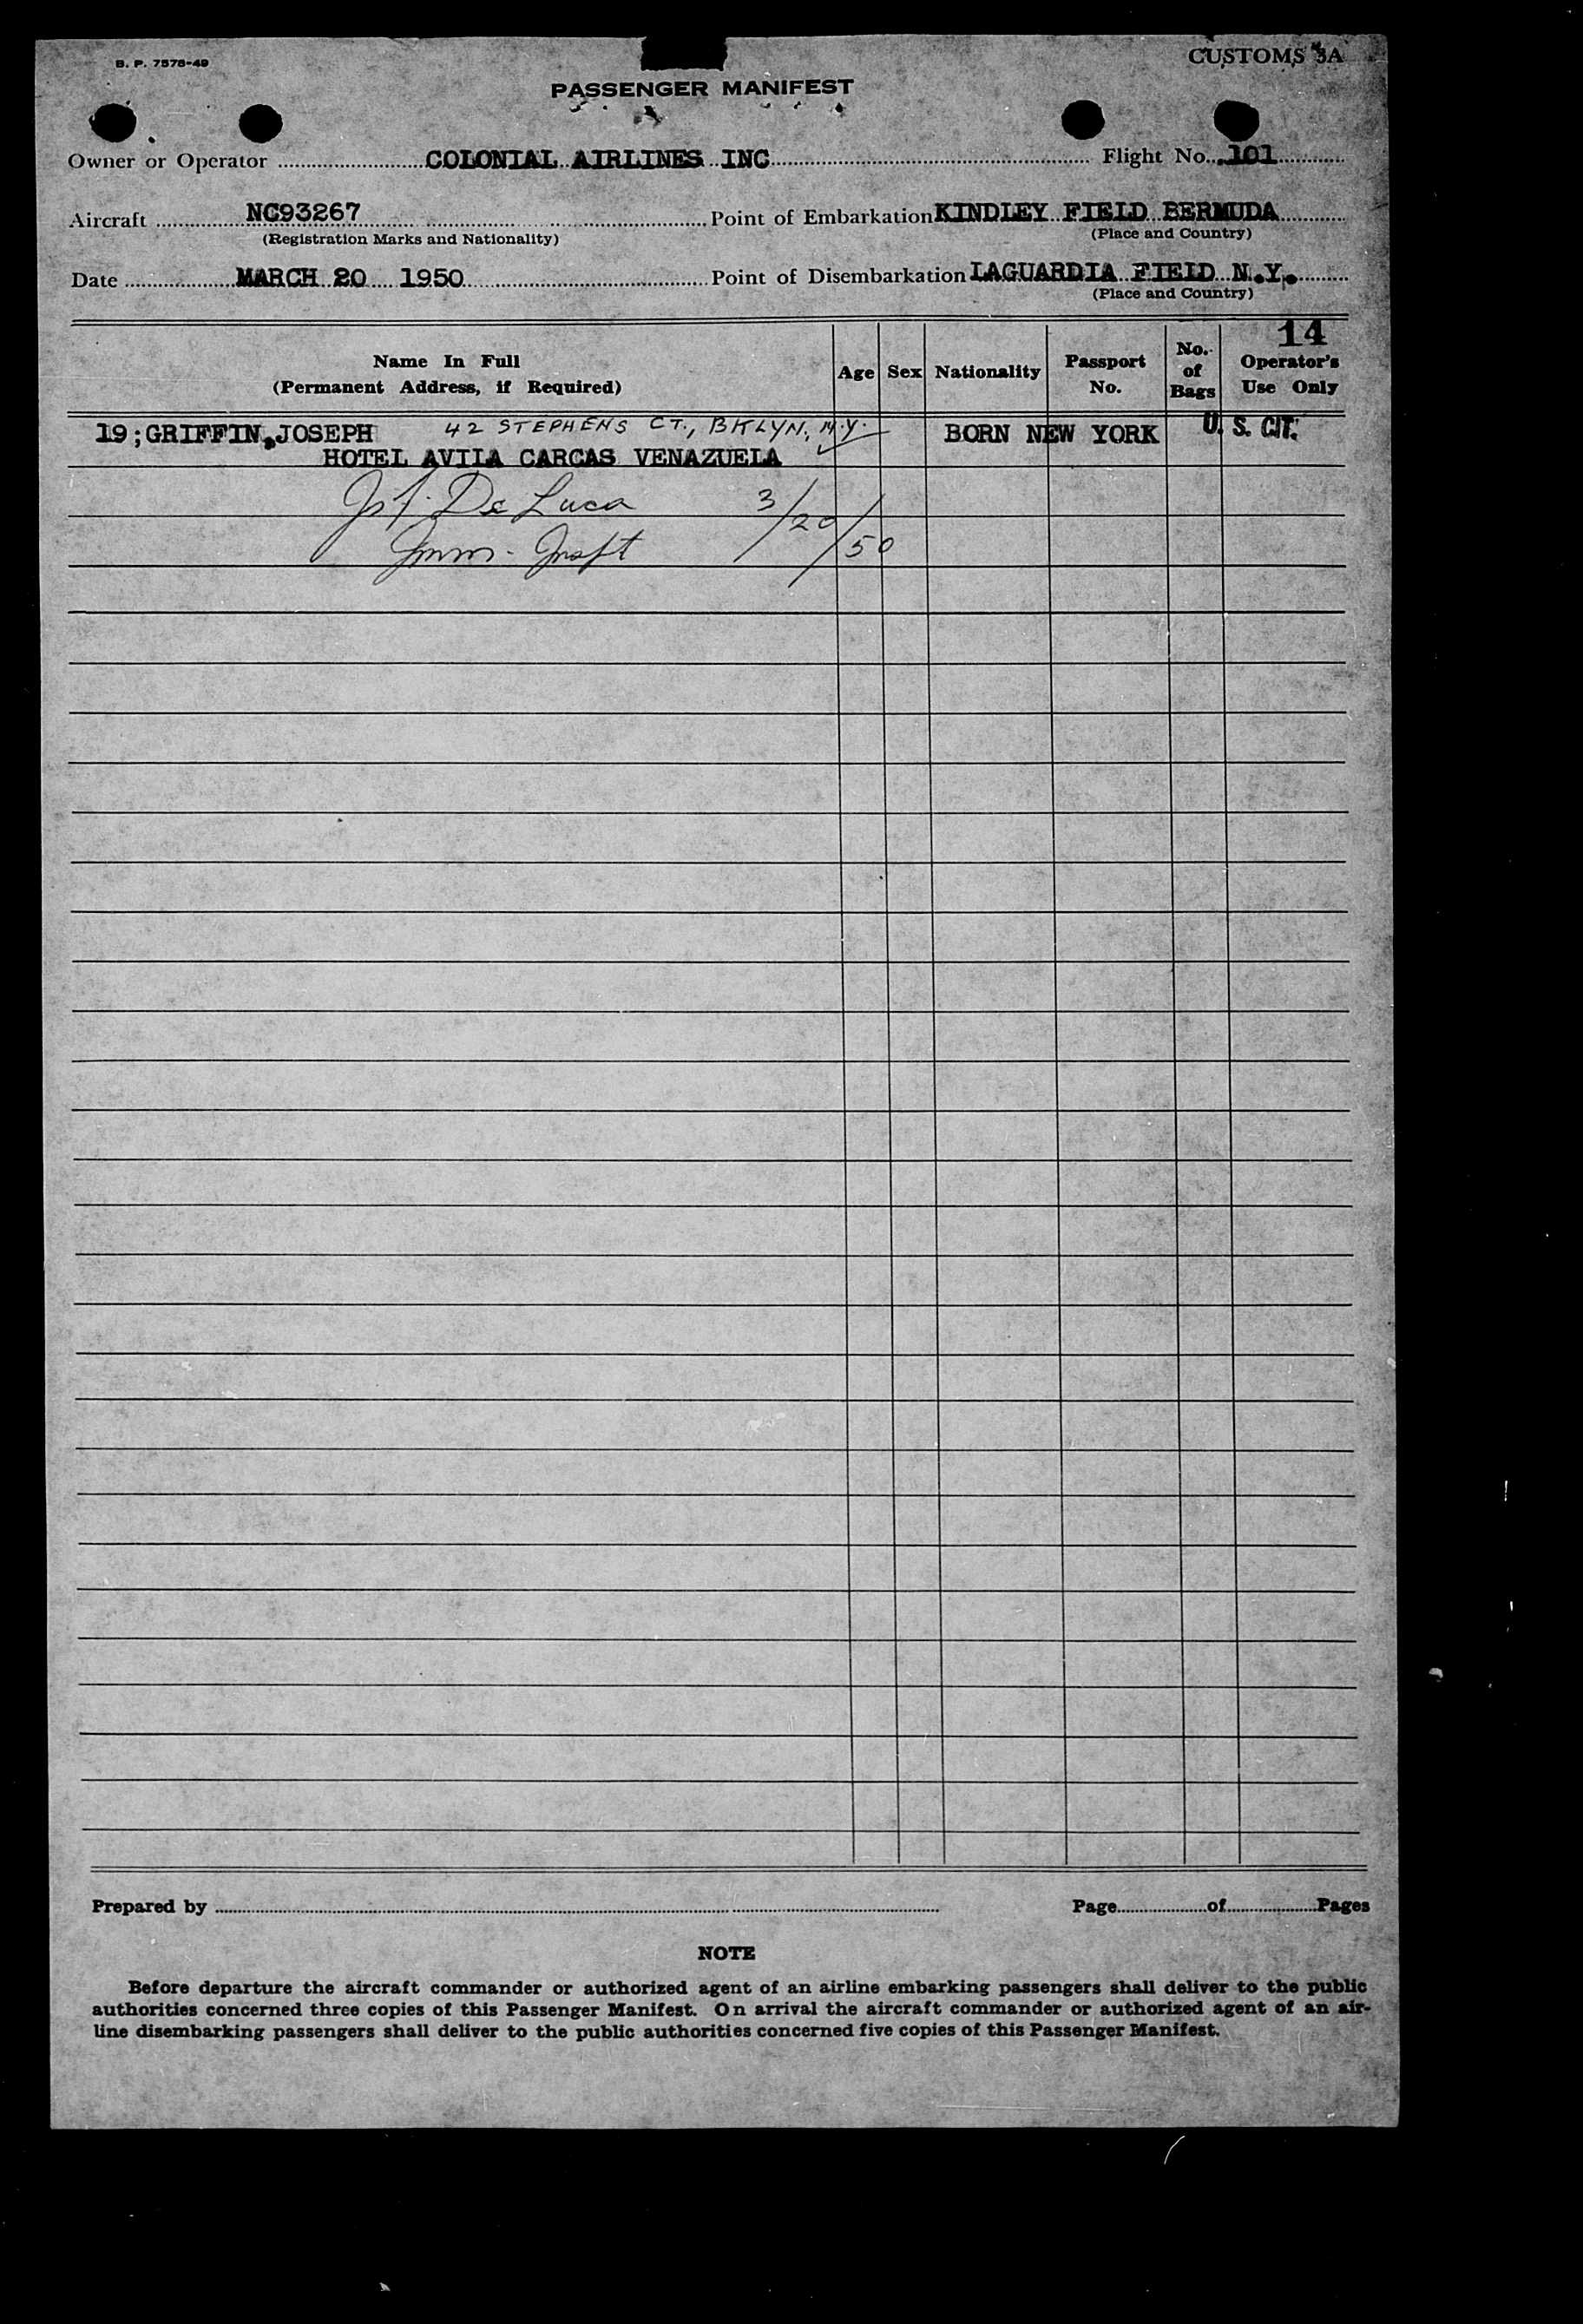 B. P. 7578-49
CUSTOMS 3A
PASSENGER MANIFEST
Owner or Operator COLONIAL AIRLINES INC Flight No. 101
Aircraft NC93267 Point of Embarkation KINDLEY FIELD BERMUDA
(Registration Marks and Nationality) (Place and Country)
Date MARCH 20 1950 Point of Disembarkation LAGUARDIA FIELD N.Y.
(Place and Country)
14
Name In Full
(Permanent Address, if Required)
Age Sex Nationality
Passport
No.
No.
of
Bags
Operator's
Use Only
19;GRIFFIN,JOSEPH 42 STEPHENS CT., BKLYN, N.Y. BORN NEW YORK U. S. CIT.
HOTEL AVILA CARCAS VENAZUELA
De Luca 3/20/50
Imm. Inspt
Prepared by Page of Pages
NOTE
Before departure the aircraft commander or authorized agent of an airline embarking passengers shall deliver to the public
authorities concerned three copies of this Passenger Manifest. On arrival the aircraft commander or authorized agent of an air-
line disembarking passengers shall deliver to the public authorities concerned five copies of this Passenger Manifest.